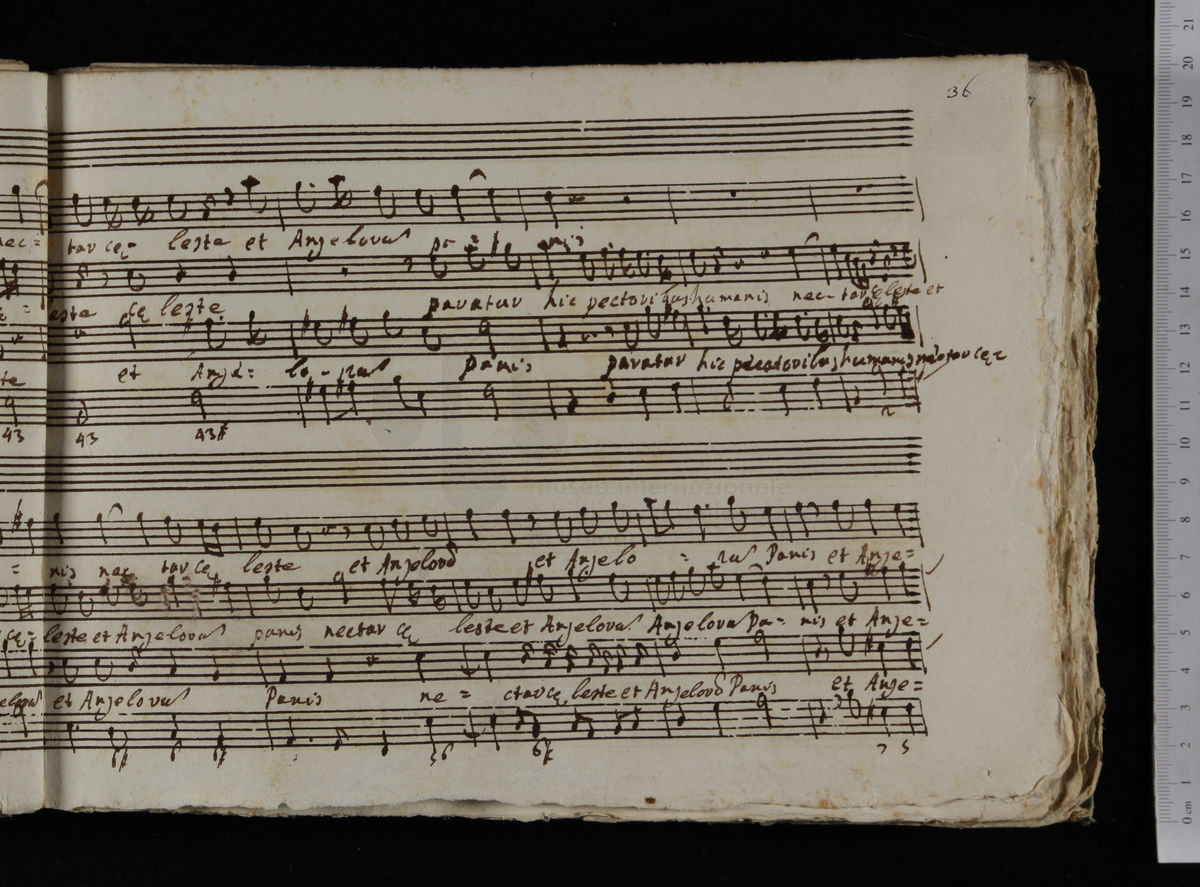 36
nec= tar cę= leste et Anjelorum pa = nis
este cę leste paratur hic pectoribus humanis nec- tar cęleste et
te et Anje= lo - rum panis paratur hic pectoribus humanis nectar cę=
43 43 43#
= nis nec tar cę leste et Anjelorum et Anjelo = rum Panis et Anje=
cę= leste et Anjelorum panis nectar cę leste et Anjelorum Anjelorum Pa= nis et Anje=
et Anjelorum Panis ne = ctar cę leste et Anjelorum Panis et Anje=
6# 6 6# 56 6# 7 5
museo internazionale
21
20
19
18
17
16
15
14
13
12
11
10
9
8
7
6
5
4
3
2
1
0 cm